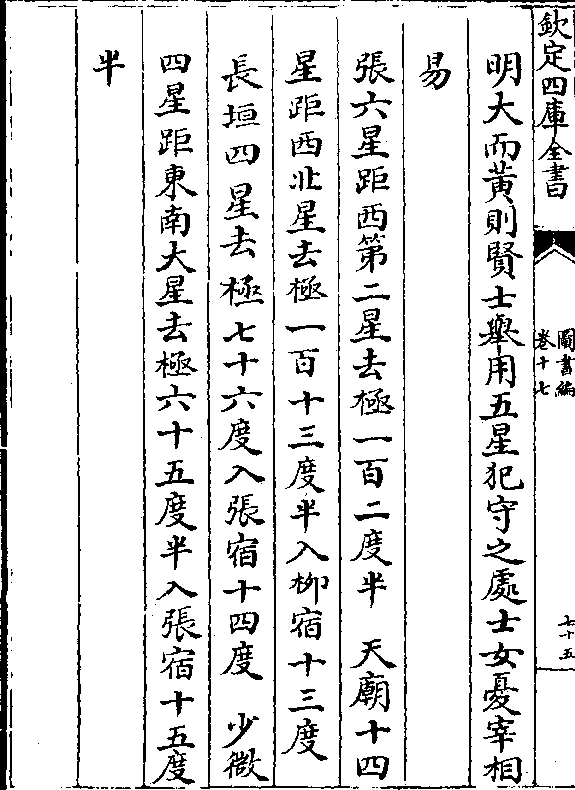 欽定四庫全書
圖書編
卷十七
七十五
明大而黃則賢士舉用五星犯守之處士女憂宰相
易
張六星距西第二星去極一百二度半 天廟十四
星距西北星去極一百十三度半入柳宿十三度
長垣四星去極七十六度入張宿十四度 少微
四星距東南大星去極六十五度半入張宿十五度
半